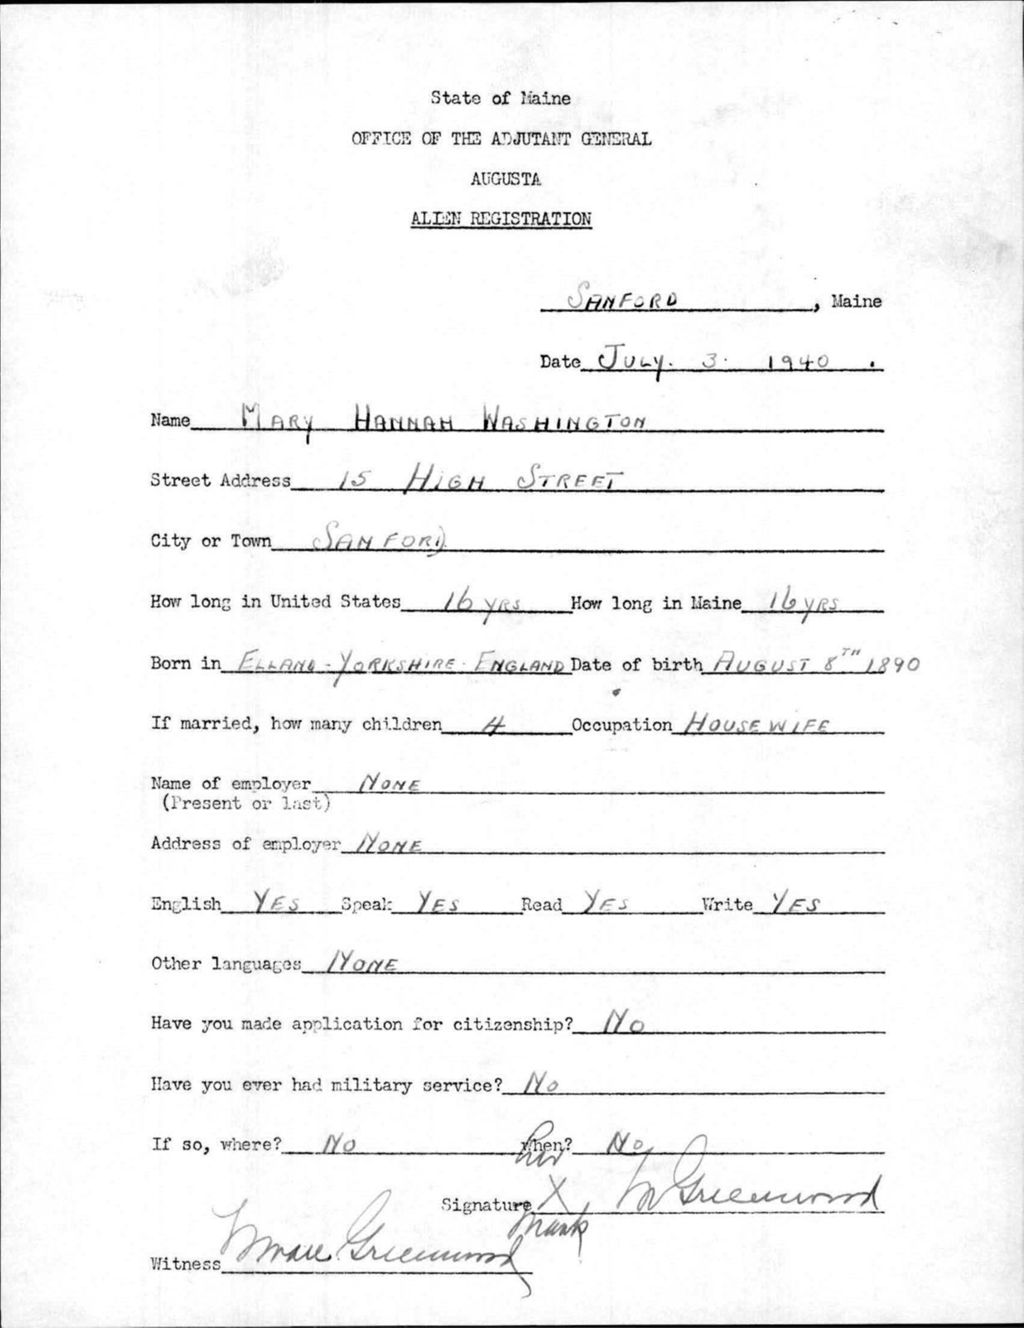 State of Maine
OFFICE OF THE ADJUTANT GENERAL
AUGUSTA
ALIEN REGISTRATION
SANFORD, Maine
Date JULY. 3. 1940.
Name MARY HANNAH WASHINGTON
Street Address 15 HIGH STREET
City or Town SANFORD
How long in United States 16 YRS How long in Maine 16 YRS
Born in ELLAND - YORKSHIRE - ENGLAND Date of birth AUGUST 8TH 1890
If married, how many children 4 Occupation HOUSEWIFE
Name of employer NONE
(Present or last)
Address of employer NONE
English YES Speak YES Read YES Write YES
Other languages NONE
Have you made application for citizenship? NO
Have you ever had military service? NO
If so, where? NO when? NO
her
Signature X Greenwood
mark
Witness Greenwood